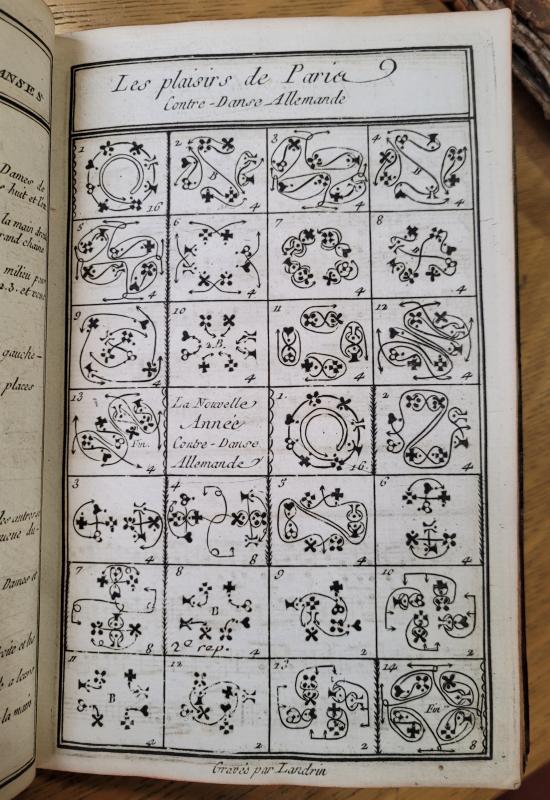 ANSES
Dames de
huit et l'on
la main droi
rand chaine
milieu pour
2.3. et vous
gauche-
places
les autres
Dames et
a leurs
la main
Les plaisirs de Paris
Contre-Danse Allemande
1 16
2 B 4
3 4
4 B 4
5 4
6 4
7 4
8 4
9 4
10 2.B. 4
11 4
12 4
13 Fin. 4
La Nouvelle
Année
Contre-Danse
Allemande
1. 16.
2 4
3 4
4 8
5 4
6 4
7 8
8 B 2e rep. 4
9 2
10 2
11 B 2
12 2
13 2
14 Fin 8
Gravés par Landrin